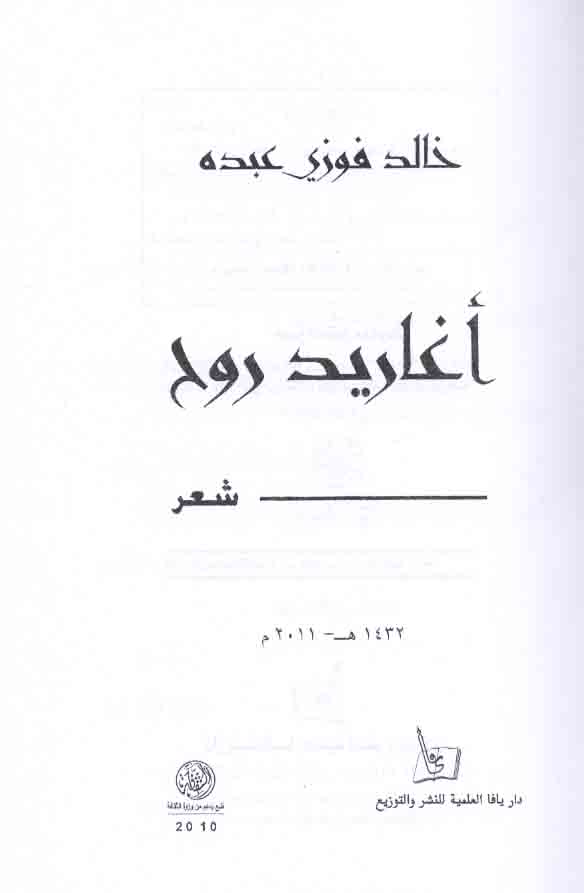 خالد فوزي عبده
أغاريد روح
شعر
١٤٣٢ هـ - ٢٠١١ م
يافا
دار يافا العلمية للنشر والتوزيع
الثقافة
طبع بدعم من وزارة الثقافة
2010